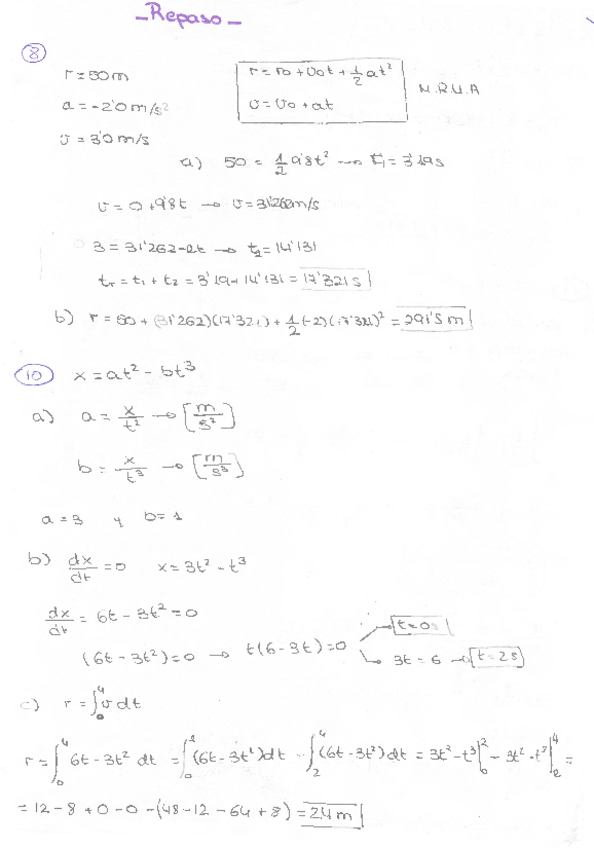 - Repaso -
8
r = 50 m
a = -2'0 m/s²
v = 3'0 m/s
r = r0 + v0t + 1/2 at²
v = v0 + at
M.R.U.A
a) 50 = 1/2 9'8t² → t1 = 3'19 s
v = 0 + 9'8t → v = 31'262 m/s
3 = 31'262 - 2t → t2 = 14'131
tT = t1 + t2 = 3'19 + 14'131 = 17'321 s
b) r = 50 + (31'262)(17'321) + 1/2 (-2)(17'321)² = 291'5 m
10 x = at² - bt³
a) a = x/t² → [m/s²]
b = x/t³ → [m/s³]
a = 3 y b = 1
b) dx/dt = 0 x = 3t² - t³
dx/dt = 6t - 3t² = 0
(6t - 3t²) = 0 → t(6 - 3t) = 0
t = 0 s
3t = 6 → t = 2 s
c) r = ∫₀⁴ v dt
r = ∫₀⁴ 6t - 3t² dt = ∫₀² (6t - 3t²) dt - ∫₂⁴ (6t - 3t²) dt = 3t² - t³ |₀² - 3t² - t³ |₂⁴ =
= 12 - 8 + 0 - 0 - (48 - 12 - 64 + 8) = 24 m